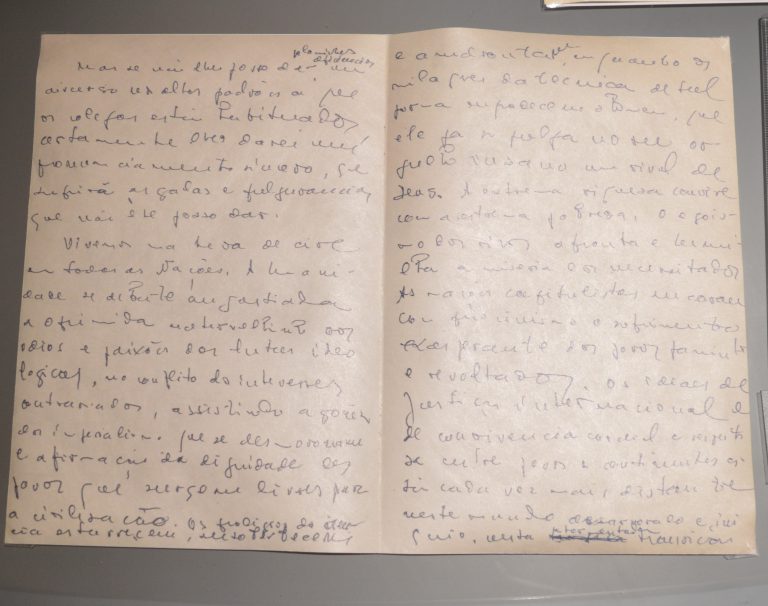 Mas se não lhe posso der um
discurso nos altos padrões a que
os colegas estão habituados
certamente lhes darei um
pronunciamento sincero, que
suprirá as galas e fulgurancias
que não lhe posso dar.
Vivemos na hora de crise
em todas as Nações. A huma-
dade se debate angustiada
e oprimida no torvelinho dos
odios e paixões das lutas ideo
logicas, no conflito de interesses
contrariados, assistindo a agonia
do imperialismo que se desmorona
e a afirmação da dignidade dos
povos que surgem livres para
a civilização. Os prodigios da
cia estarrecem, ensoberbecem
e amedrontam, enquanto os
milagres da tecnica de tal
forma empolgam o homem, que
ele já se julga no seu or
gulho insano um rival de
Deus. A extrema riqueza convive
com a extrema pobreza, e o egois-
mo dos ricos afronta e humi-
lha a miseria dos necessitados
As nações capitalistas encaram
com o sofrimento
exasperante dos povos famintos
e revoltados. Os ideais de
justiça internacional e
de convivencia cordial e respeito
sa entre povos e continentes es
tão cada vez mais distantes
neste mundo desesperado e ini
quo, nesta transição